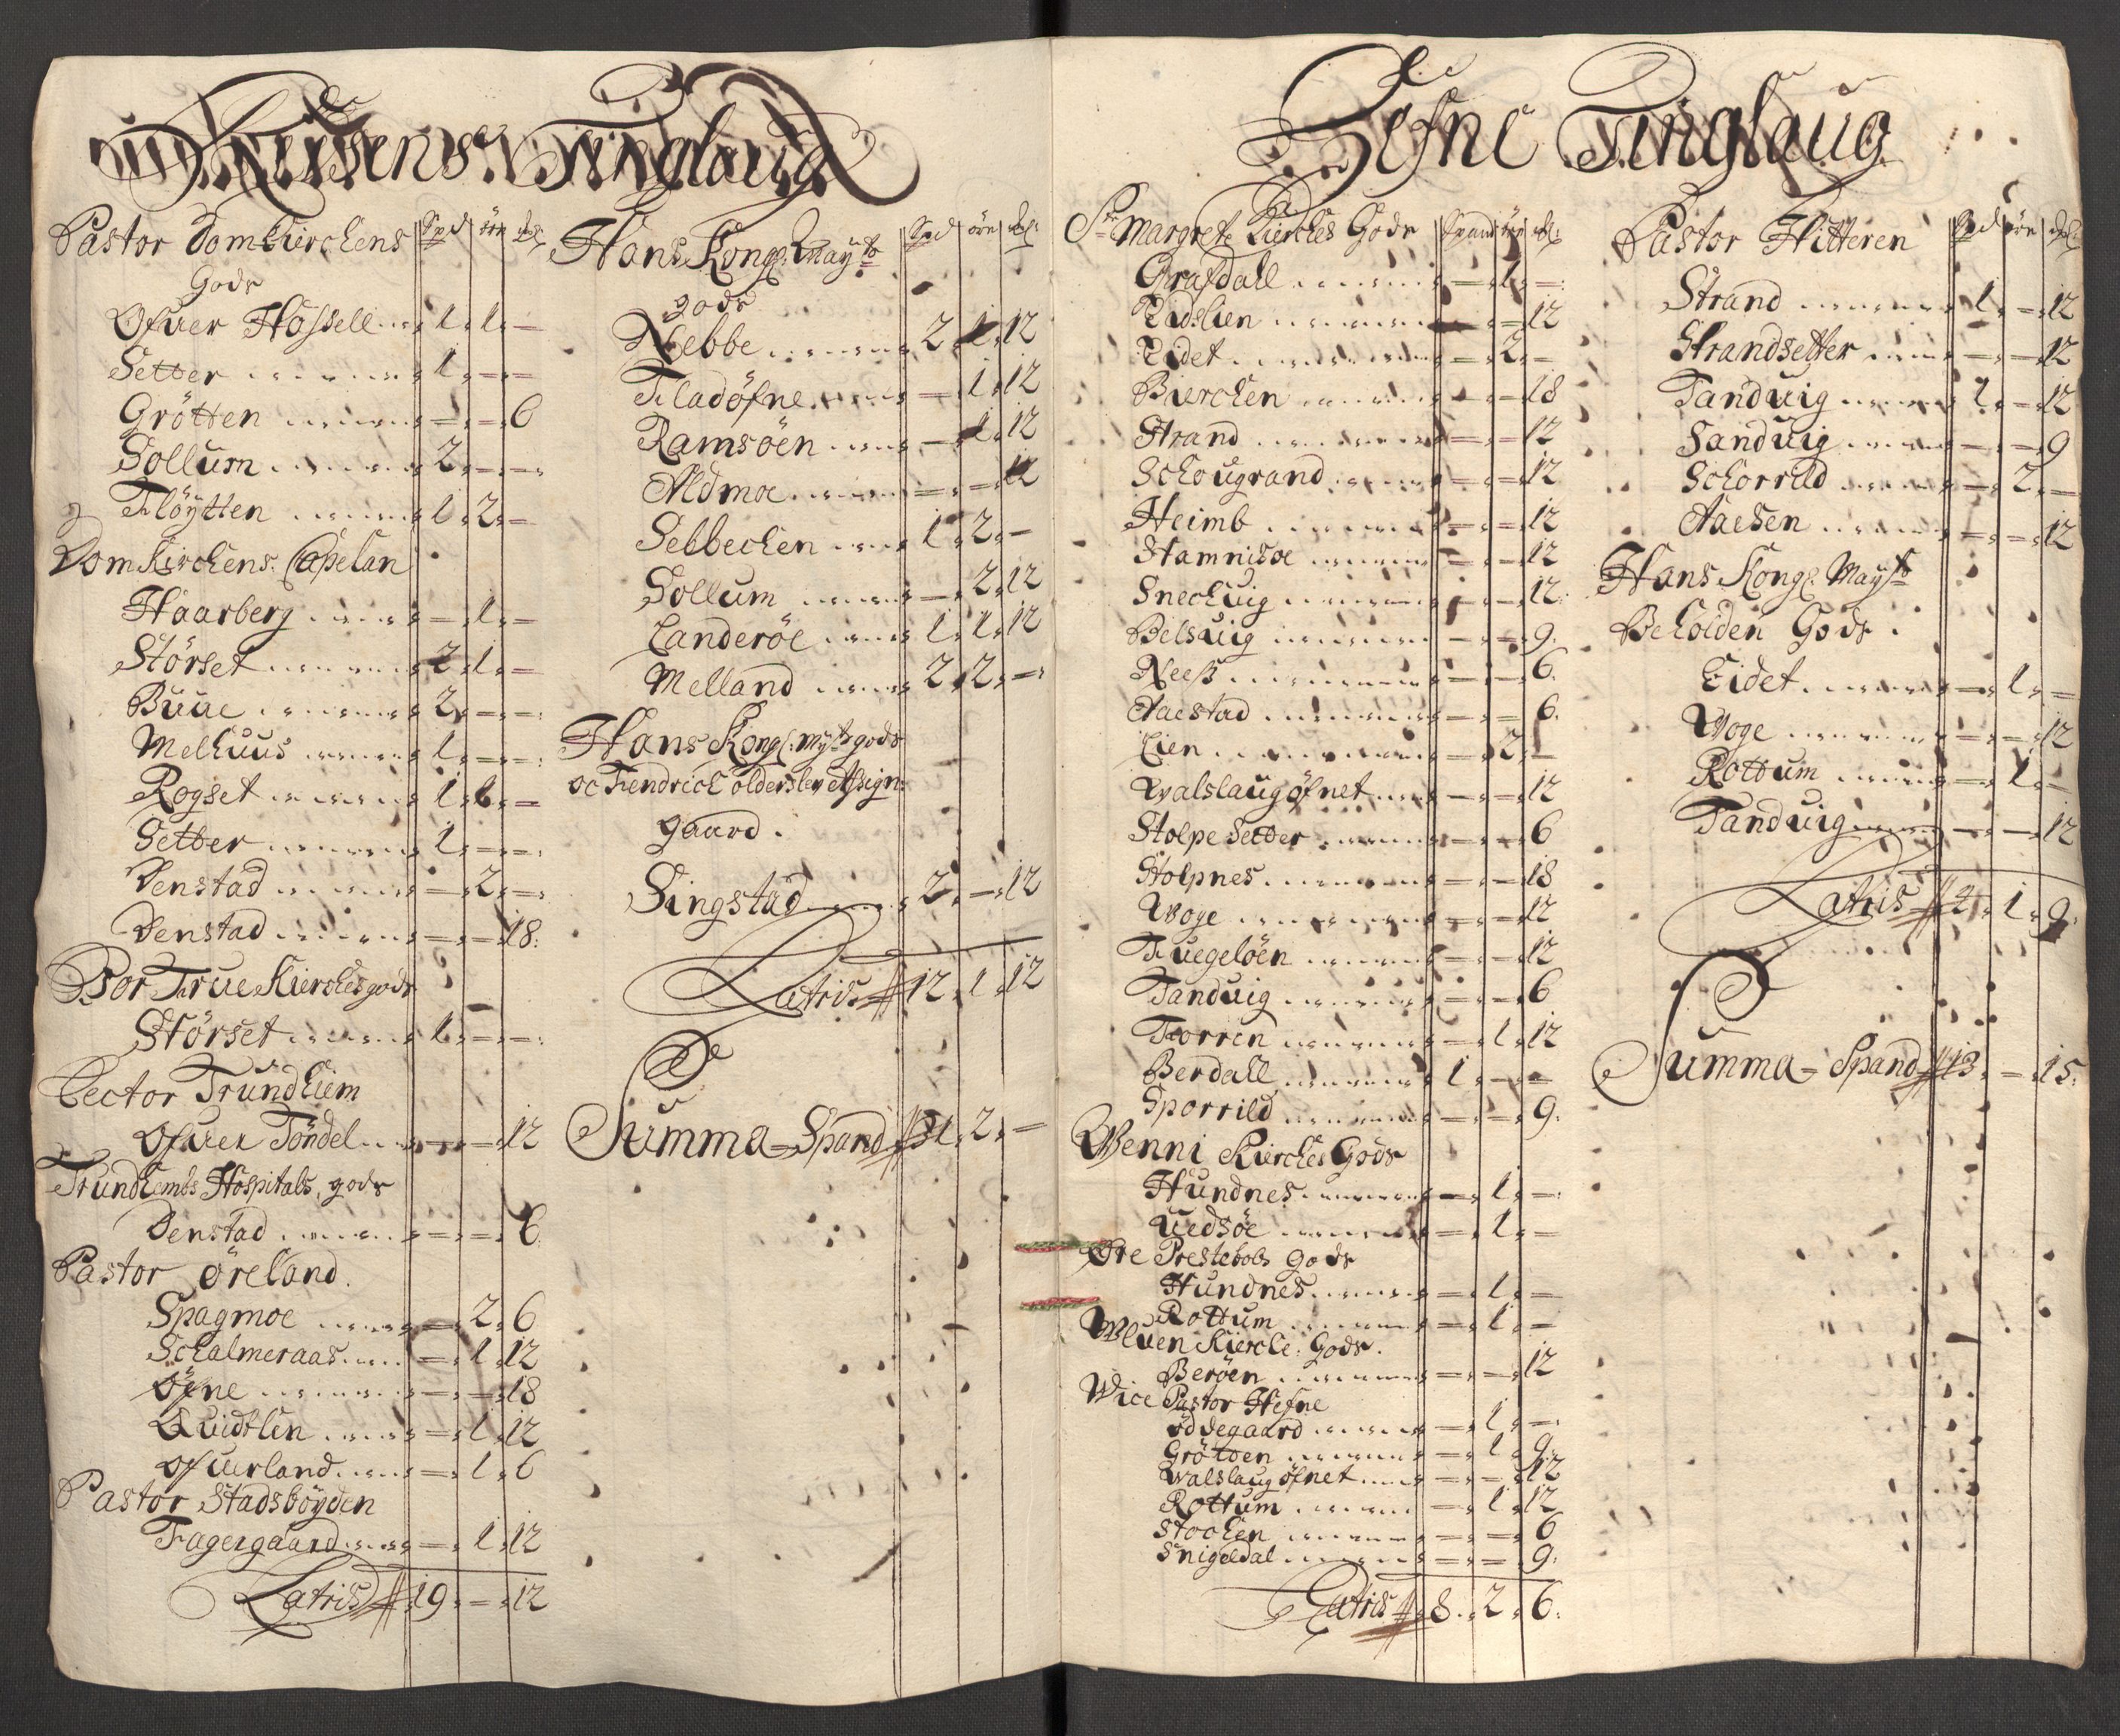 Tinglaug
Pastor Domkirchens Spd øre mkl:
Gods
Ofuer Hossell 1 1 -
Setter 1 - -
Grøtten - - 6
Sollum 2 - -
Fløytten 1 2 -
Domkirchens Capelan
Haarberg - 1 -
Størset 2 1 -
Buue 2 - -
Melhuus 1 - -
Rogset 1 1 -
Setter 1 - -
Denstad - 2 -
Denstad - - 18
Vor Frue Kierches gods
Størset 1 - -
Lector Trundhiem
Ofuer Tøndel - - 12
Trundhembs Hospitals gods
Denstad - - 6
Pastor Øreland
Spagmoe - 2 6
Schalmeraas - 1 12
Øfne - - 18
Quidtlen - 1 12
Ofuerland - 1 6
Pastor Stadsbøyden
Fagergaard - 1 12
Latris 19 - 12
Hans Kongl: Mayts Spd øre mkl:
gods
Nebbe 2 1 12
Fladøfne - 1 12
Ramsøen - 1 12
Aldmoe - - 12
Sebbechen 1 2 -
Sollum - 2 12
Landerøe 1 1 12
Melland 2 2 -
Hans Kongl: Myts gods
oc Hendrich Olderslev Assign:
gaard.
Singstad 2 - 12
Latris 12 1 12
Summa Spand 31 2 -
Hefne Tinglaug
St Margrete Kierches Gods Spand øre mkl:
Grafdall - 1 -
Eidslien - - 12
Eidet - 2 -
Bierchen - - 18
Strand - - 12
Schougrand - - 12
Heimb - - 12
Stamnisoe - - 12
Snechuig - - 12
Belsuig - - 9
Neess - - 6
Aaestad - - 6
Lien - 2 -
Walslaugøfnet - - 12
Stolpe Setter - - 6
Stolpnes - - 18
Woge - - 12
Fuegeløen - - 12
Tanduig - - 6
Forren - 1 12
Berdall 1 - -
Sporrild - - 9
Wenni Kierches Gods
Hundnes - 1 -
Uedsøe - 1 -
Øre Prestebols Gods
Hundnes - 1 -
Rottum - 1 -
Kierche: Gods.
Berøen - - 12
Wice Pastor Hefne
Øddegaard - 1 -
Grøtoen - 1 9
Walslaugøfnet - - 12
Rottum - 1 12
Stochen - - 6
Snigeldal - - 9
Latris 8 2 6
Pastor Hitteren Spd øre mkl:
Strand 1 - 12
Strandsetter - - 12
Tanduig 1 - 12
Sanduig - - 9
Schorrild - 2 -
Aaesen - - 12
Hans Kongl Mayts
Beholden Gods.
Eidet - 1 -
Woge - - 12
Rottum - 1 -
Tanduig - - 12
Latris 4 1 9
Summa Spand 13 - 15